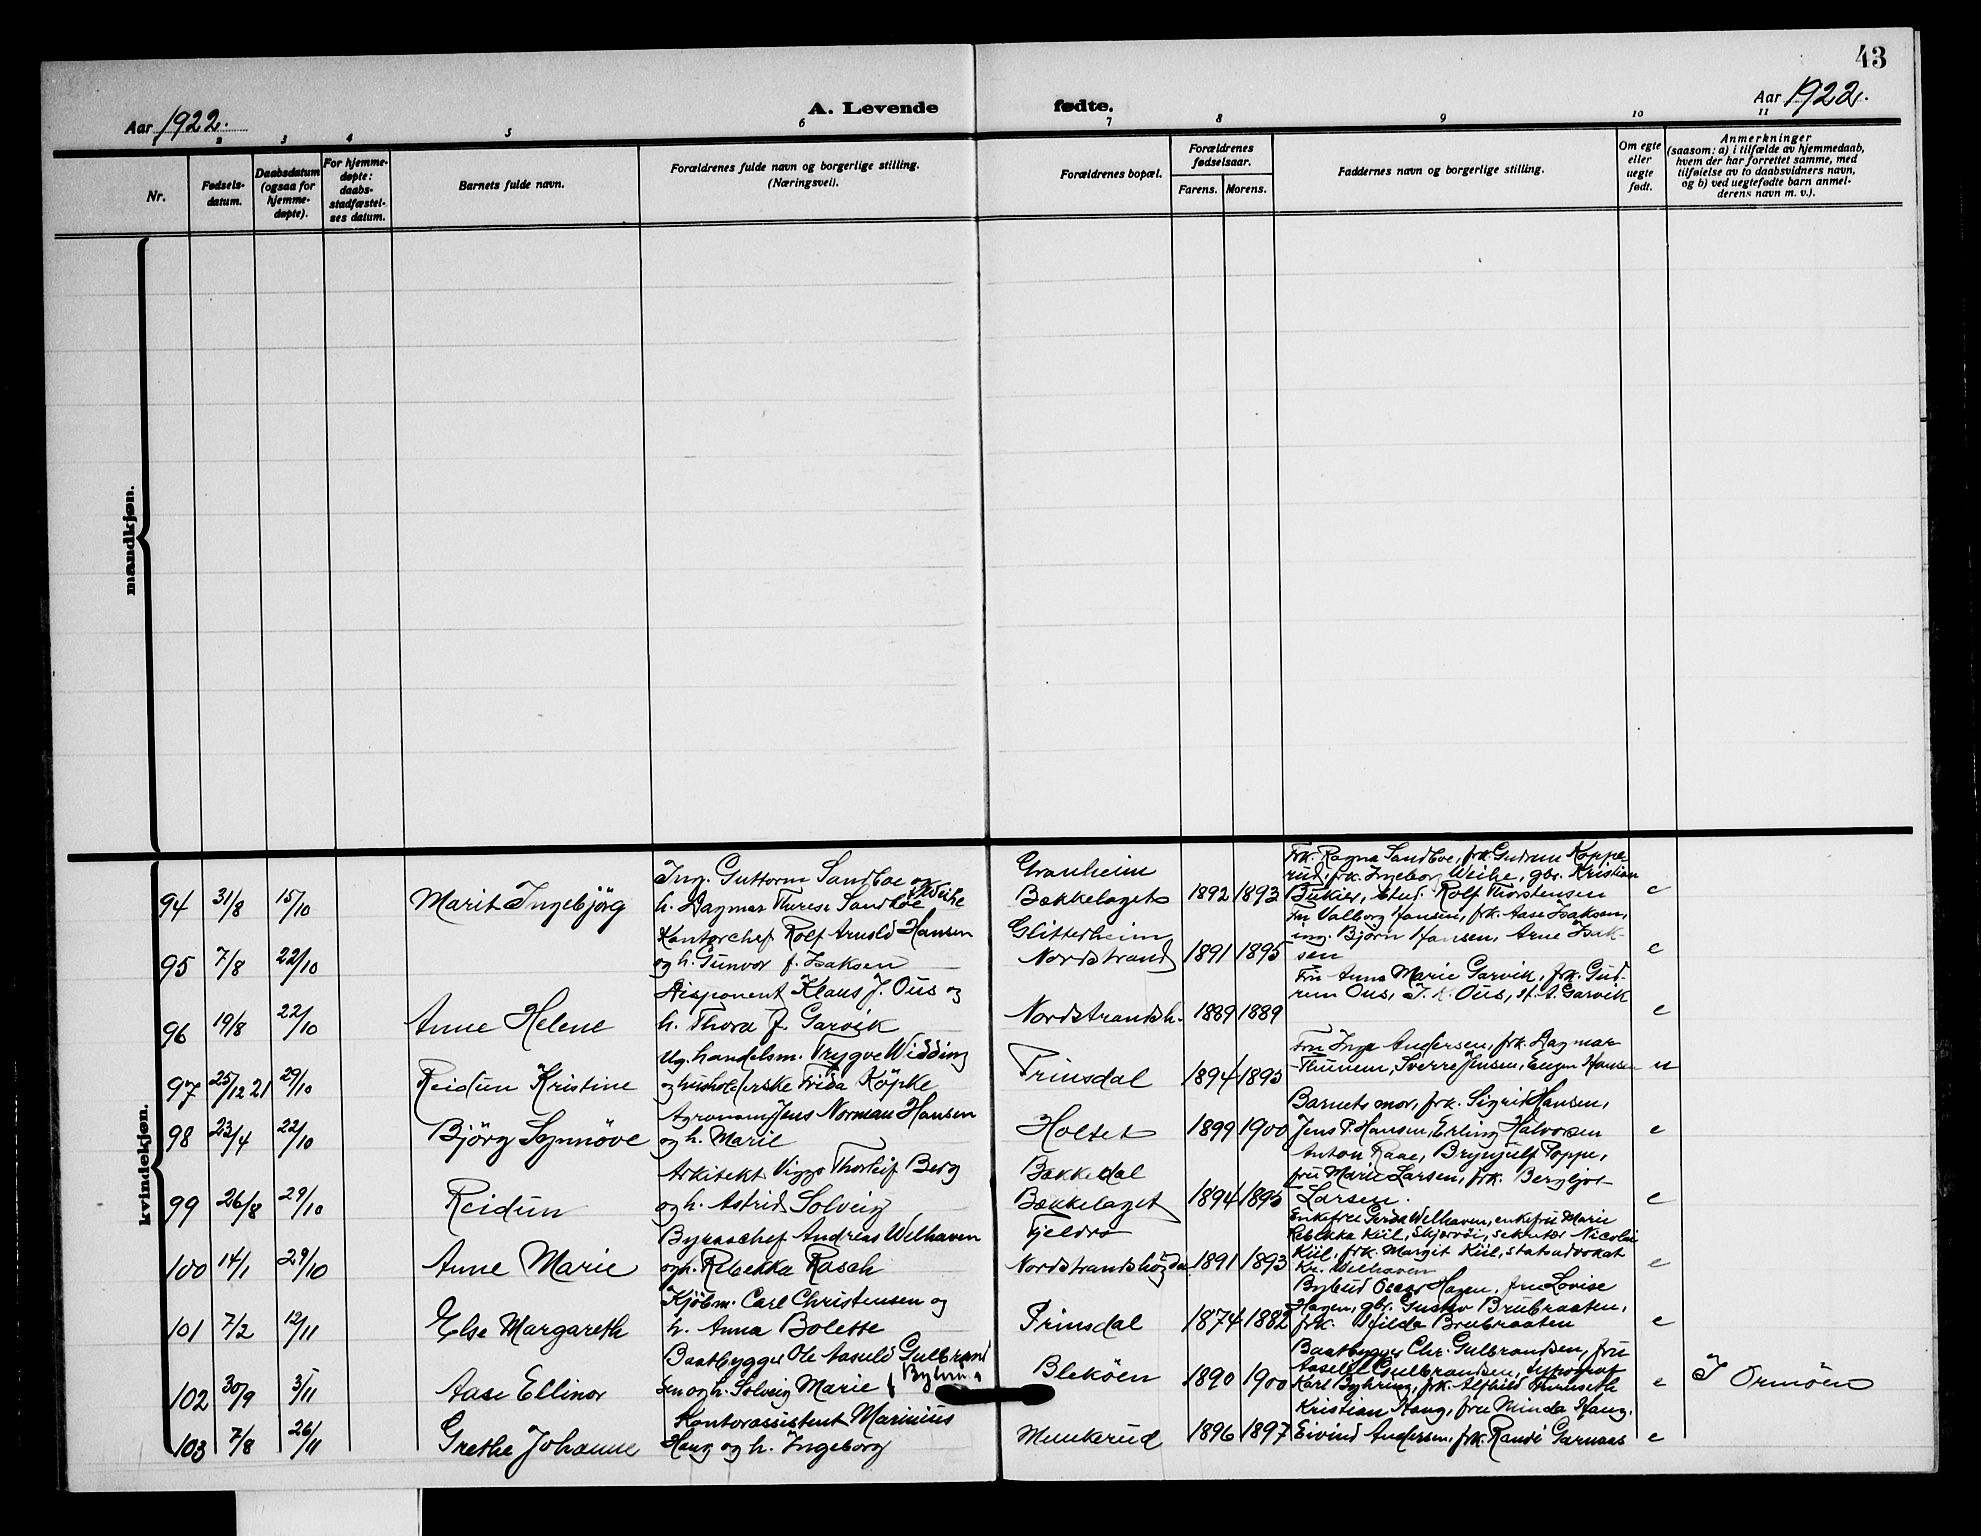 43
Aar 1922.
A. Levende fødte.
Aar 1922.
2 3 4 5 6 7 8 9 10 11
Nr.
Fødsels-
datum.
Daabsdatum
(ogsaa for
hjemme-
døpte).
For hjemme-
døpte:
daabs-
stadfæstel-
ses datum.
Barnets fulde navn.
Forældrenes fulde navn og borgerlige stilling.
(Næringsvei).
Forældrenes bopæl.
Forældrenes
fødselsaar.
Farens. Morens.
Faddernes navn og borgerlige stilling.
Om egte
eller
uegte
født.
Anmerkninger
(saasom: a) i tilfælde av hjemmedaab,
hvem der har forrettet samme, med
tilføielse av to daabsvidners navn,
og b) ved uegtefødte barn anmel-
derens navn m. v.).
mandkjøn.
kvindekjøn.
94 31/8 15/10 Marit Ingebjörg
Ing. Guttorm Sandboe og
h. Dagmar Therese Sandboe f. Weihe
Granheim
Bækkelaget 1892 1893
Frk. Ragna Sandboe, frk. Gudrun Koppe-
rud, frk. Ingeborg Weihe, gbr. Kristian
Bukier, stud. Rolf Thorstensen
e
95 7/8 22/10
Kontorchef Rolf Arnold Hansen
og h. Gunvor f. Isaksen
Glitterheim
Nordstrand 1891 1895
Fru Valborg Hansen, frk. Aase Isaksen,
ing. Björn Hansen, Arne Isak-
sen
e
96 19/8 22/10 Anne Helene
Disponent Klaus J. Ous og
h. Thora f. Garvik
Nordstrandsh. 1889 1889
Fru Anna Marie Garvik, frk. Gud-
run Ous, J. K. Ous, st. A. Garvik
e
97 25/12 21 29/10 Reidun Kristine
Ug. handelsm. Trygve Widding
og husholderske Frida Köpke
Prinsdal 1894 1895
Fru Inga Andersen, frk. Dagmar
Thunem, Sverre Jensen, Eugen Hansen
u
98 23/4 22/10 Björg Synnöve
Agronom Jens Norman Hansen
og h. Marie
Holtet 1899 1900
Barnets mor, frk. Sigrid Hansen,
Jens P. Hansen, Erling Halvorsen
e
99 26/8 29/10 Reidun
Arkitekt Viggo Thorleif Berg
og h. Astrid Solveig
Bækkedal
Bækkelaget 1894 1895
Anton Raae, Brynjulf Poppe,
fru Marie Larsen, frk. Bergljot
Larsen.
e
100 14/1 29/10 Anne Marie
Byraachef Andreas Welhaven
og h. Rebekka Rasch
Fjeldro
Nordstrandshögda 1891 1893
Enkefru Gerda Welhaven, enkefru Marie
Rebekka Kiil, Skjervöi, sekretær Nicolai
Kiil, frk. Margit Kiil, statsadvokat
Kr. Welhaven
e
101 7/2 12/11 Else Margareth
Kjöbm. Carl Christensen og
h. Anna Bolette
Prinsdal 1874 1882
Bybud Oscar Hagen, fru Lovise
Hagen, gbr. Gustav Brubraaten,
frk. Hilda Brubraaten
e
102 30/9 5/11 Aase Ellinor
Baatbygger Ole Aasuld Gulbrand
sen og h. Solveig Marie f. Byhring
Bleköen 1890 1900
Baatbygger Chr. Gulbrandsen, fru
Gulbrandsen, typograf
Karl Byhring, frk. Alfhild Thrinseth
e I Ormöen
103 7/8 26/11 Grethe Johanne
Kontorassistent Marinius
Haug og h. Ingeborg
Munkerud 1896 1897
Kristian Haug, fru Minda Haug.
Eivind Andersen, frk. Randi Garnaas
e